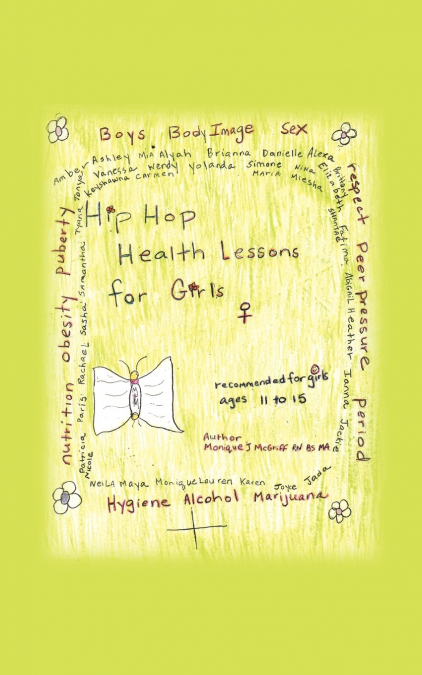 Boys Body Image Sex
Amber Ashley Mia Alyah Brianna Danielle Alexa
Vanessa Wendy Yolanda Simone Nina Elizabeth Brittany
Carmen Maria Miesha
respect Peer pressure period
Fatima Abigail Heather Ioanna Jackie
nutrition obesity Puberty
Patricia Paris Rachael Sasha Samantha
Nicole
Hip Hop
Health Lessons
for Girls
♀
recommended for girls
ages 11 to 15
Author
Monique J McGriff RN BS MA
Neila Maya Monique Lauren Karen Joyce Jada
Hygiene Alcohol Marijuana